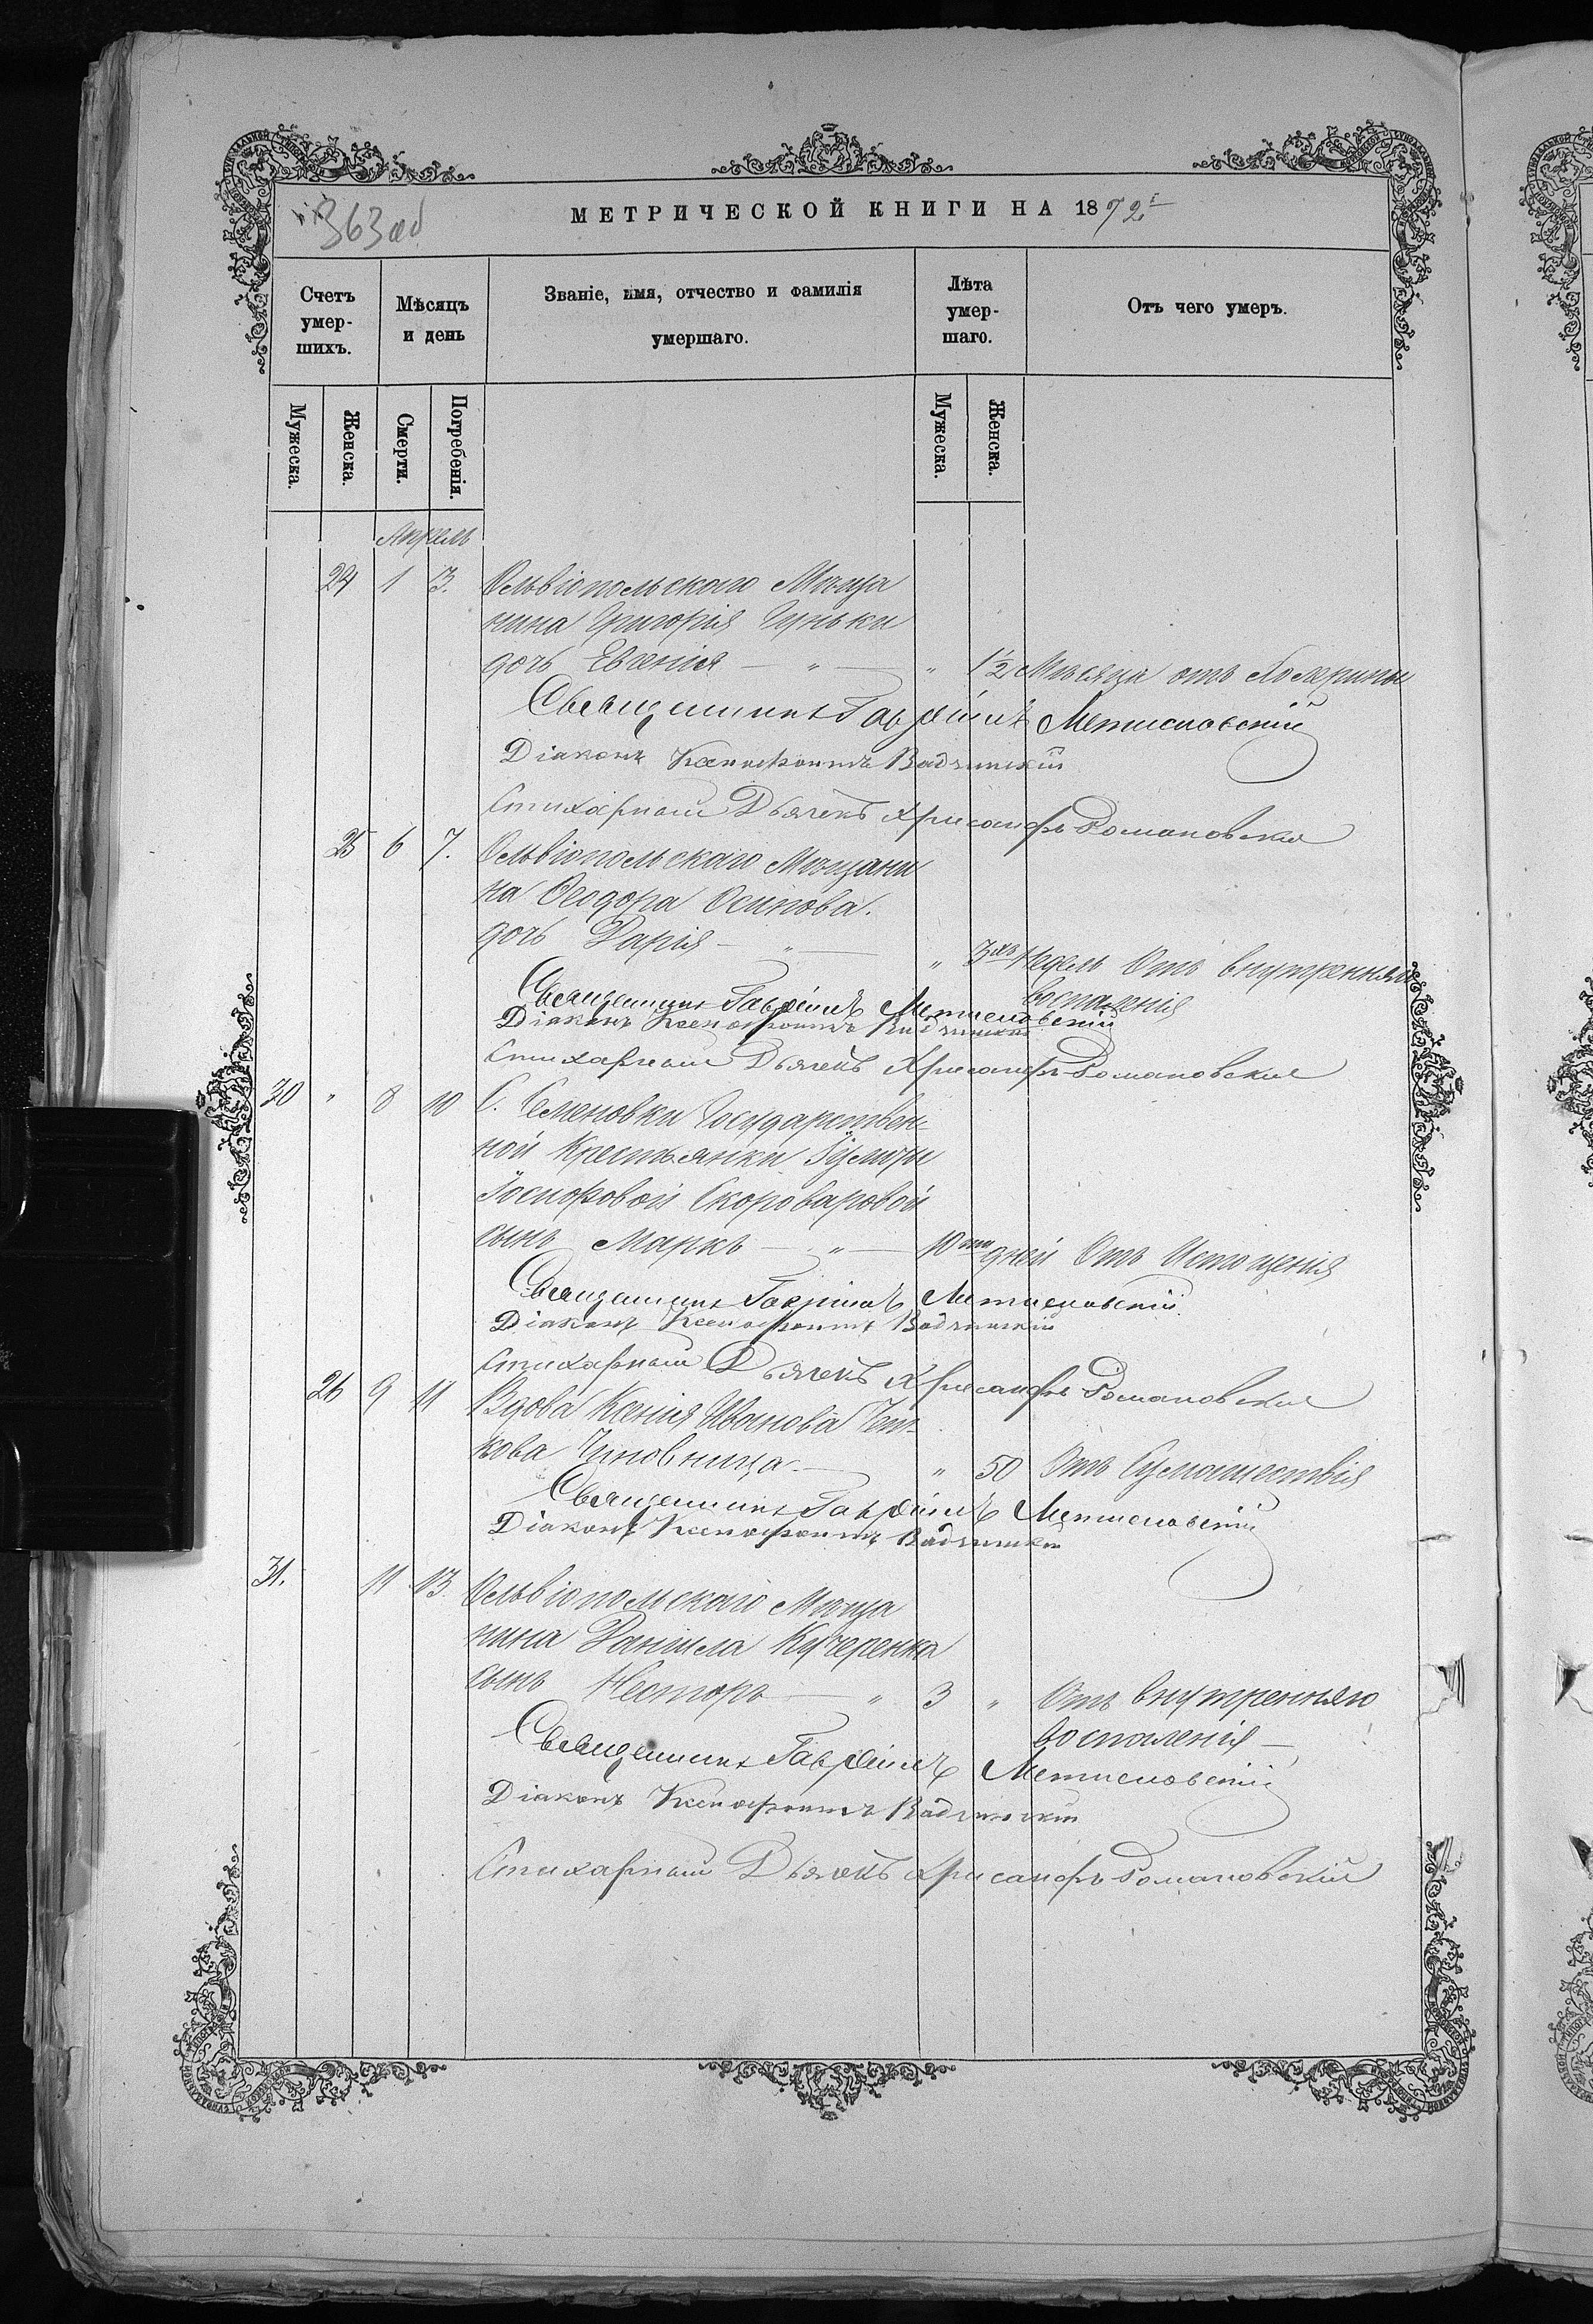 363 об
МЕТРИЧЕСКОЙ КНИГИ НА 1872 г
Счетъ умер-шихъ.
Мѣсяцъ и день
Званіе, имя, отчество и фамилія умершаго.
Лѣта умер-шаго.
Отъ чего умеръ.
Мужеска.
Женска.
Смерти.
Погребенія.
Мужеска.
Женска.
Апрель
24 1 3. Ольвіопольскаго Мѣща
нина Григорія Гуньки
дочь Евгенія — " — " 1½ Мѣсяца отъ Холерины
Священникъ Гавріилъ
Діаконъ Ксенофонтъ
Стихарный Дьячекъ Хрисанфъ Романовскій
25 6 7. Ольвіопольскаго Мѣщани
на Ѳеодора Осипова.
дочь Дарія — " — " 3хъ Недель Отъ внутренняго
воспаленія
Священникъ Гавріилъ
Діаконъ Ксенофонтъ
Стихарный Дьячекъ Хрисанфъ Романовскій
30 " 8 10 С. Семеновки Государствен-
ной Крестьянки
Іосифовой Скороваровой
сынъ Маркъ — " — 10ти дней Отъ Истощенія
Священникъ Гавріилъ
Діаконъ Ксенофонтъ
Стихарный Дьячекъ Хрисанфъ Романовскій
26 9 11 Вдова Ксенія Иванова
кова Чиновница — " 50 Отъ Сумашествія
Священникъ Гавріилъ
Діаконъ Ксенофонтъ
31. 11 13. Ольвіопольскаго Мѣща
нина Даніила Кучеренка
сынъ Несторъ — " 3 " Отъ внутренняго
воспаленія —
Священникъ Гавріилъ
Діаконъ Ксенофонтъ
Стихарный Дьячекъ Хрисанфъ Романовскій